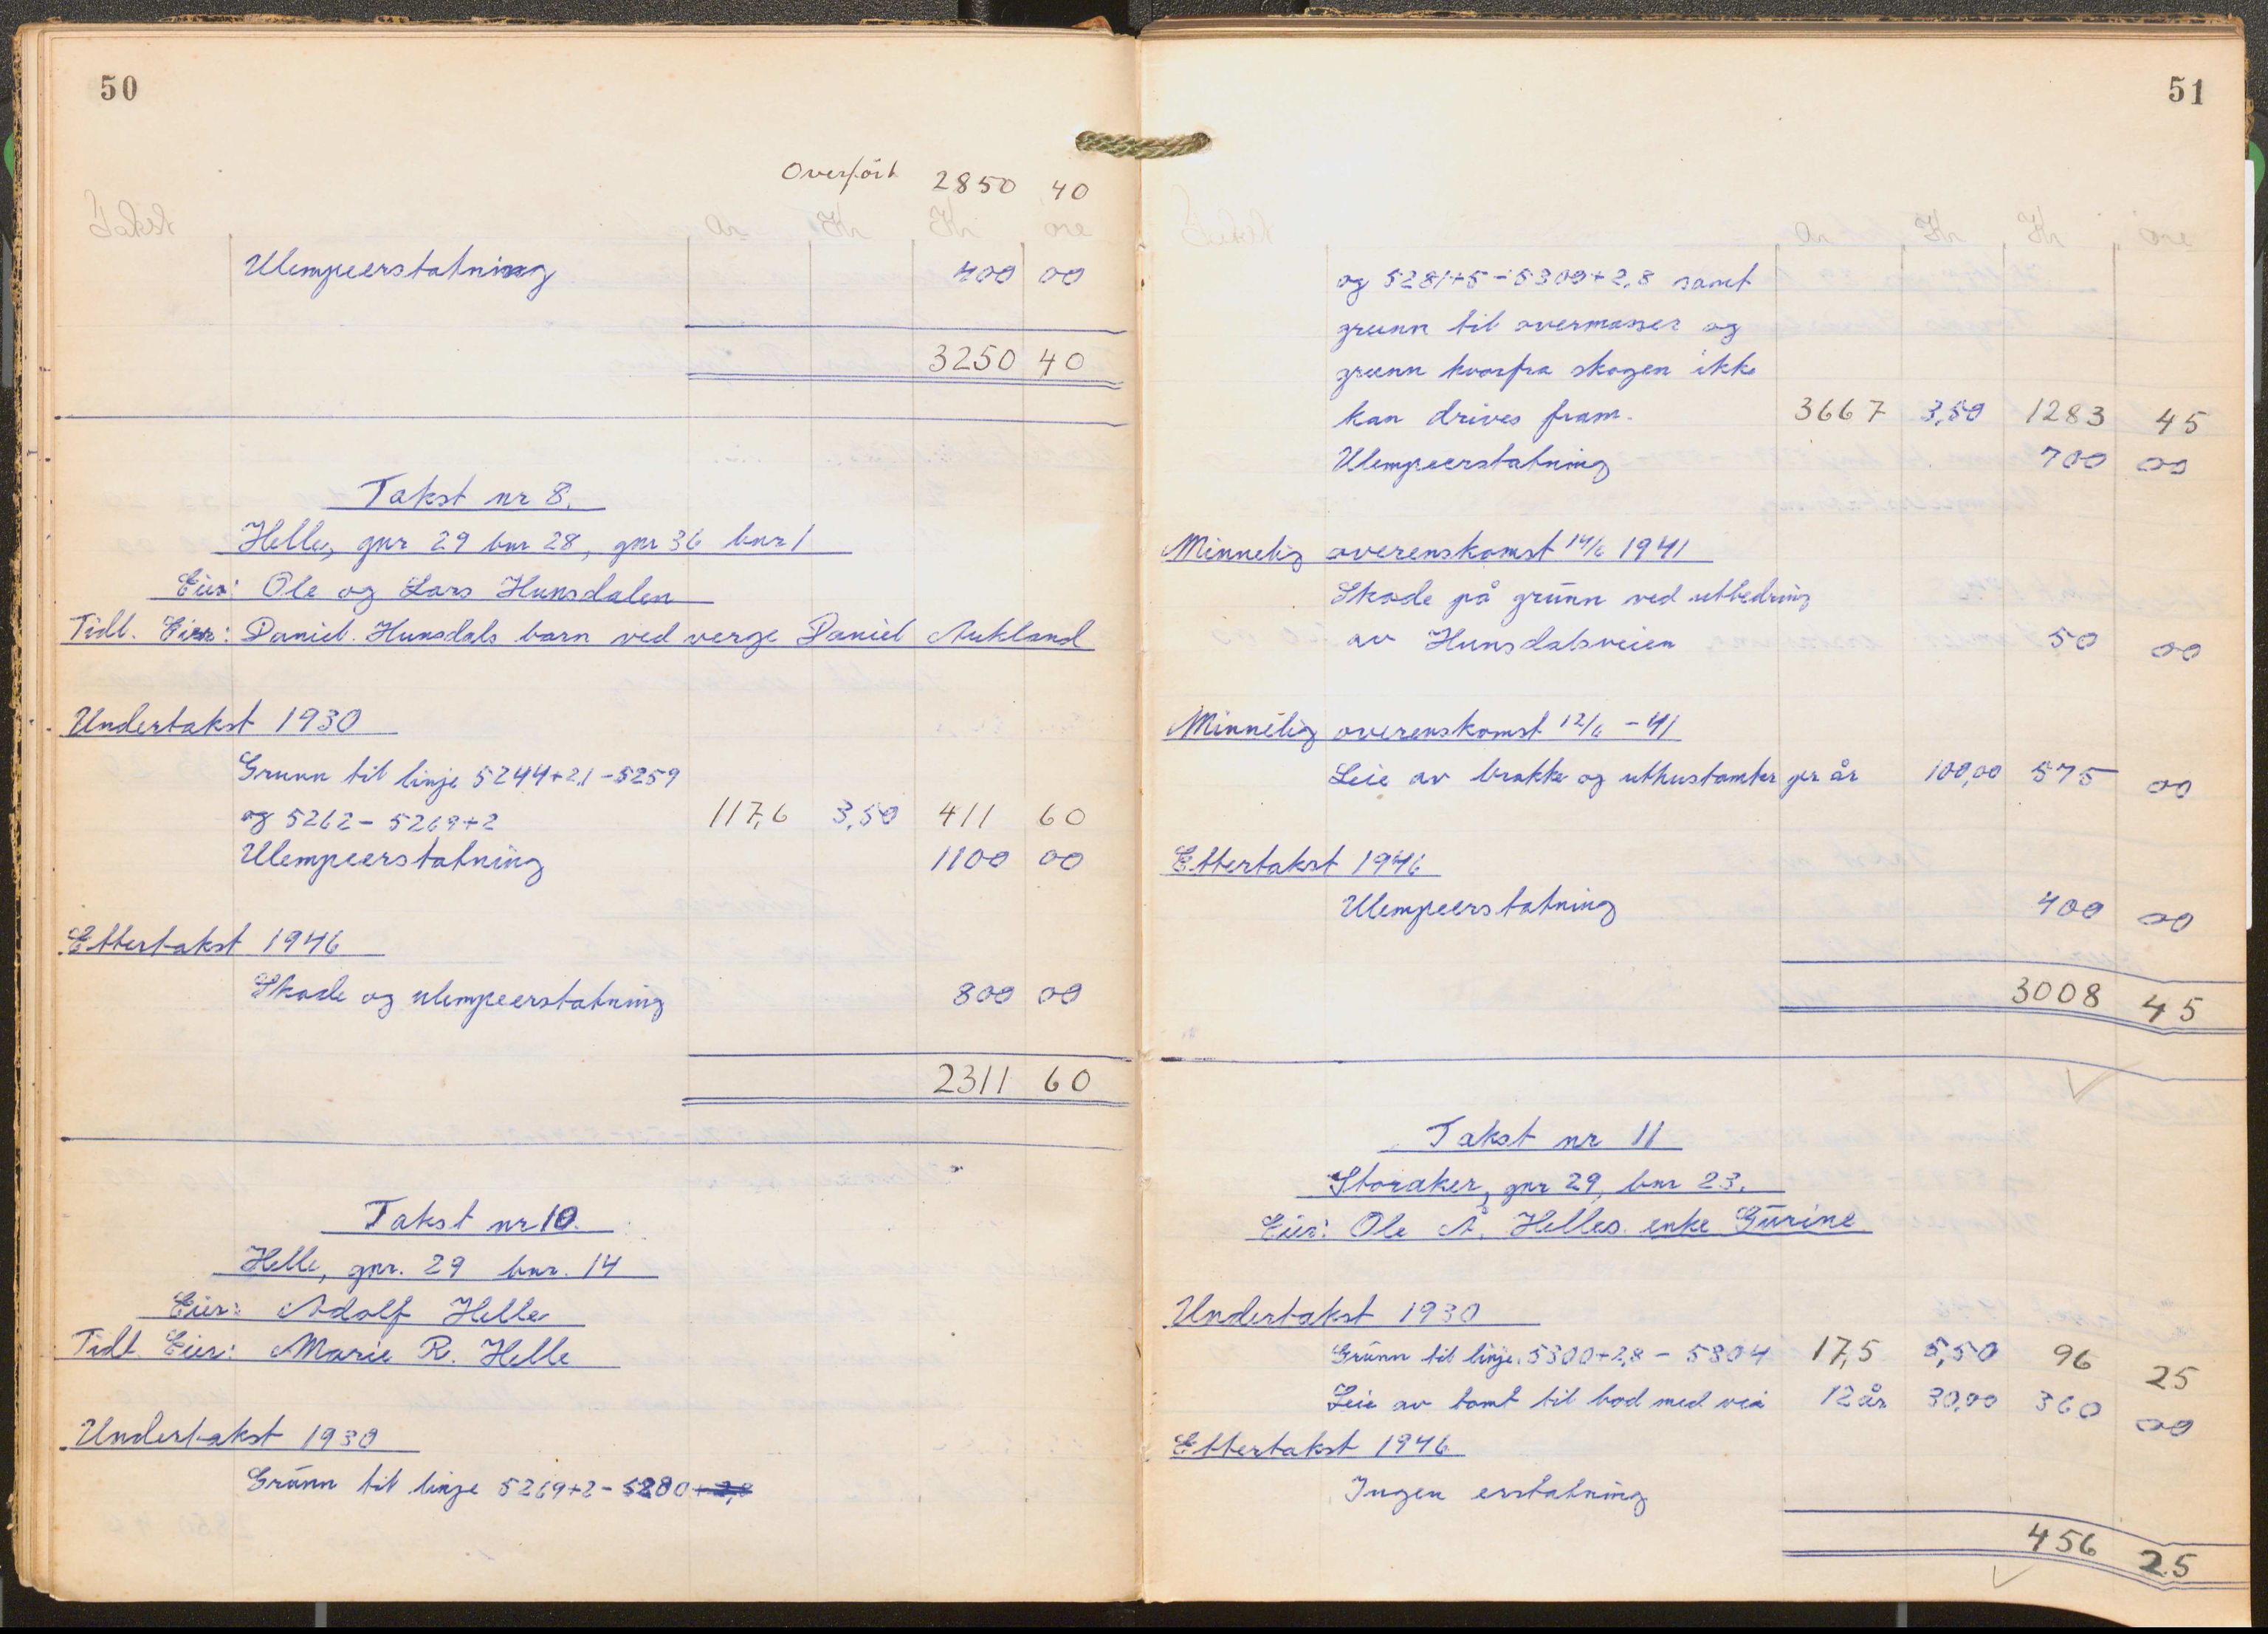 50
Overført 2850 40
Takst ar Kr Kr øre
Ulempeerstatning 400 00
3250 40
Takst nr 8.
Helle, gnr 29 bnr 28, gnr 36 bnr 1
Eier: Ole og Lars Hunsdalen
Tidl. Eier: Daniel Hunsdals barn ved verge Daniel Aukland
Undertakst 1930
Grunn til linje 5244+2,1-5259
og 5262-5269+2 117,6 3,50 411 60
Ulempeerstatning 1100 00
Ettertakst 1946
Skade og ulempeerstatning 800 00
2311 60
Takst nr 10.
Helle, gnr. 29 bnr. 14
Eier: Adolf Helle
Tidl. Eier: Marie R. Helle
Undertakst 1930
Grunn til linje 5269+2-5280+2,8
51
Takst ar Kr Kr øre
og 5281+5-5300+2,8 samt
grunn til overmasser og
grunn hvorfra skogen ikke
kan drives fram. 366 7 3,50 1283 45
Ulempeerstatning 700 00
Minnelig overenskomst 14/6 1941
Skade på grunn ved utbedring
av Hunsdalsveien 50 00
Minnelig overenskomst 12/6 -41
Leie av brakke og uthustomter pr år 100,00 575 00
Ettertakst 1946
Ulempeerstatning 400 00
3008 45
Takst nr 11
Storaker, gnr 29, bnr 23.
Eier: Ole A. Helles enke Gurine
Undertakst 1930
Grunn til linje 5300+2,8 - 5304 17,5 5,50 96 25
Leie av tomt til bod med vei 12 år 30,00 360 00
Ettertakst 1946
Ingen erstatning
456 25